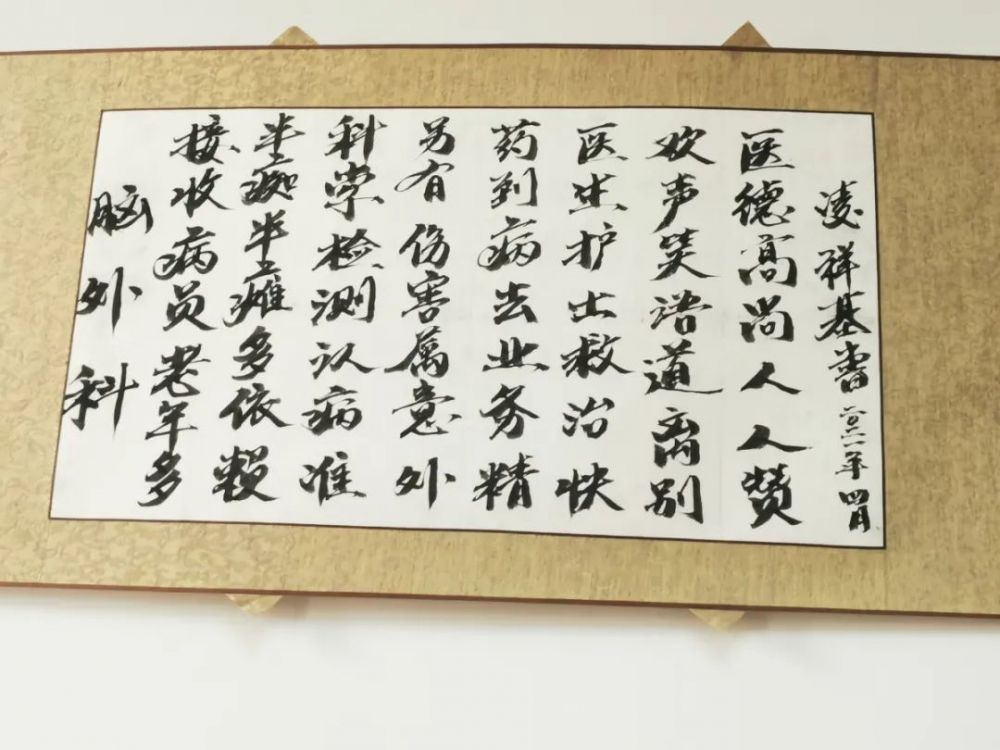 脑外科
接收病员老年多
半痴半瘫多依赖
科学检测认病准
另有伤害属意外
药到病去业务精
医生护士救治快
欢声笑语道离别
医德高尚人人赞
凌祥基书 二〇二一年四月